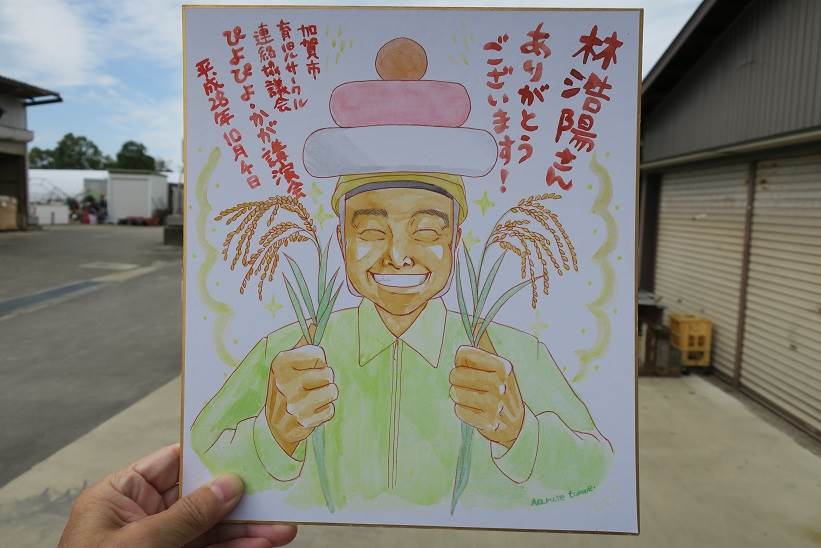 林浩陽さん
ありがとう
ございます!
加賀市
育児サークル
連絡協議会
ぴよぴよ・かが講演会
平成28年10月4日